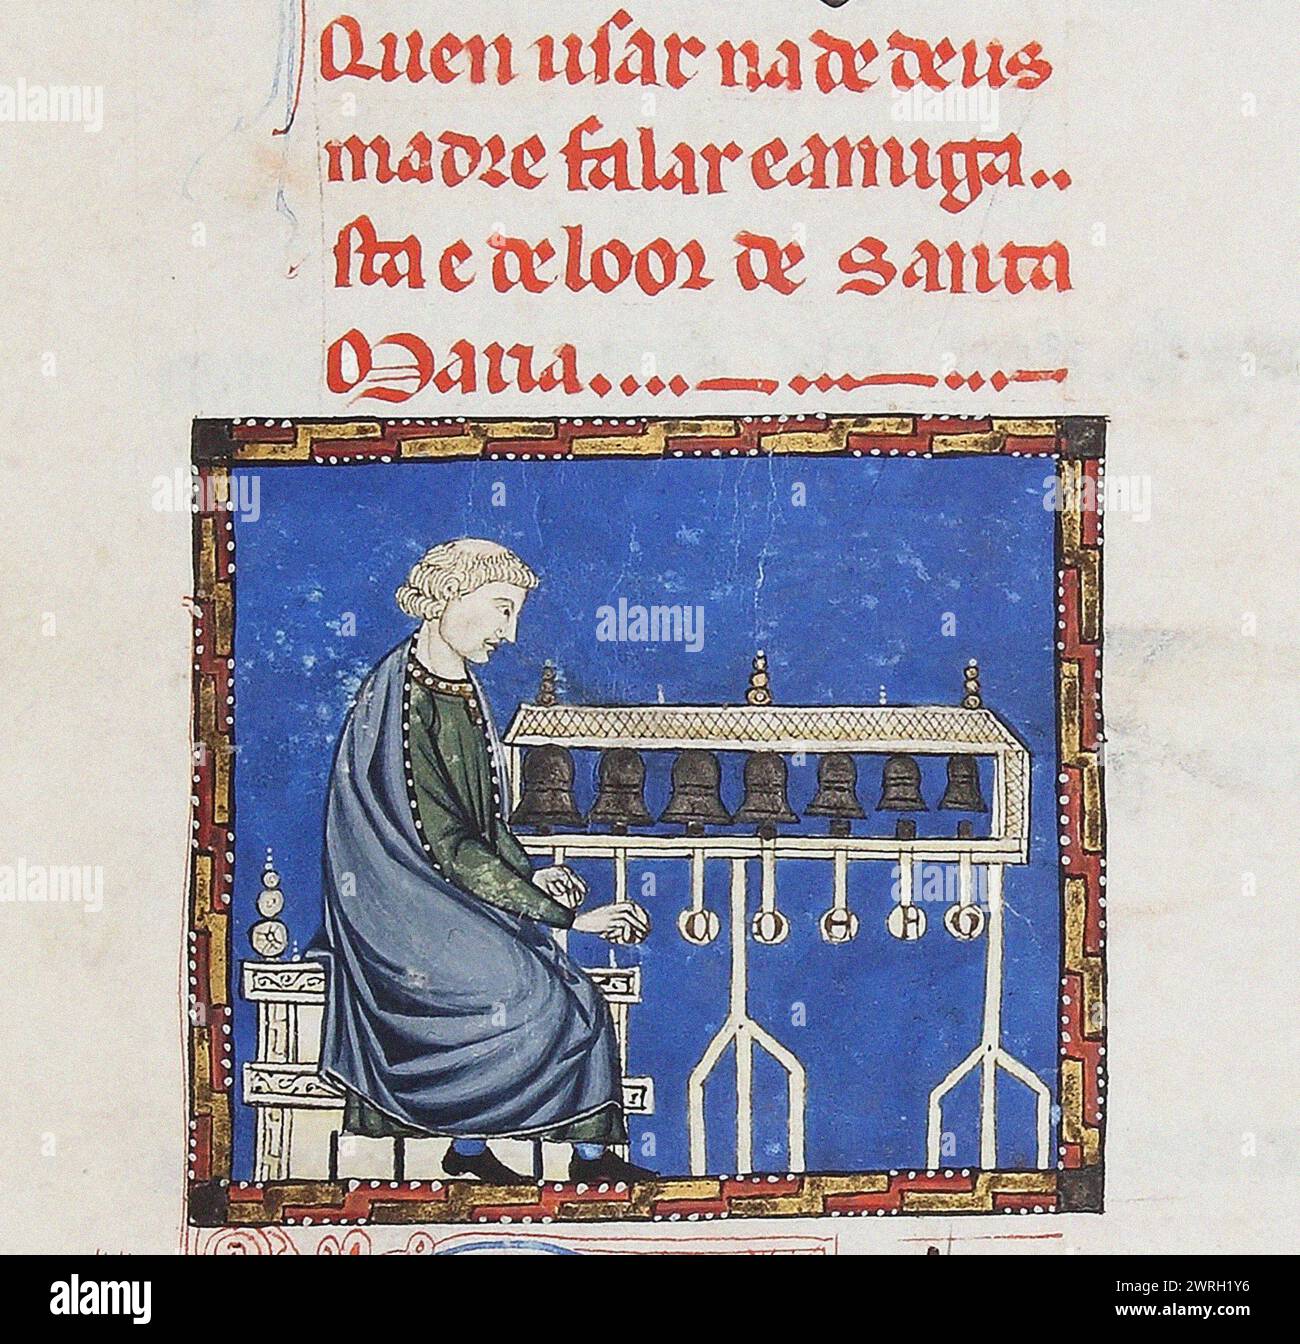 Quen usar na de deus
madre falar e amiga..
sta e de loor de Santa
Maria....
alamy
alamy
alamy
alamy
Image ID: 2WRH1Y6
www.alamy.com